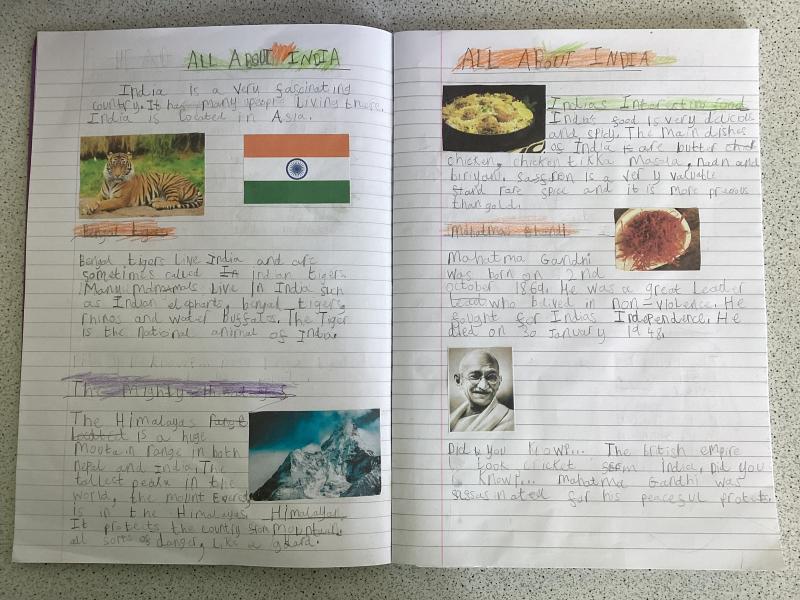 ALL ABOUT INDIA
India is a very fascinating
country. It has many people living there.
India is located in Asia.
Bengal tigers
Bengal tigers live India and are
sometimes called In Indian tigers.
Many mammals live in India such
as Indian elepharts, bengal tigers,
rhinos and water buffalo. The Tiger
is the national animal of India.
The Mighty
The Himalayas
located is a huge
Moutain range in both
nepal and India. The
tallest peak in the
world, the mount Everest
is in the Himalayas.
It protects the country from
all sorts of danger, like a guard.
Himalayan
Mountain
ALL ABOUT INDIA
Indias Interesting food
India's food is very delicious
and spicy. The main dishes
of India is are butter
chicken, chicken tikka Masala, naan and
biriyani. Saffron is a very valuable
and rare spice and it is more precious
than gold.
Mahatma Gandhi
Mahatma Gandhi
was born on 2nd
october 1869. He was a great Leader
Lead who belived in non-violence. He
fought for Indias Independence. He
died on 30 January 1948.
Did you know?... The british empire
took cricket from India. Did you
know?... Mahatma Gandhi was
assasinated for his peaceful protests.